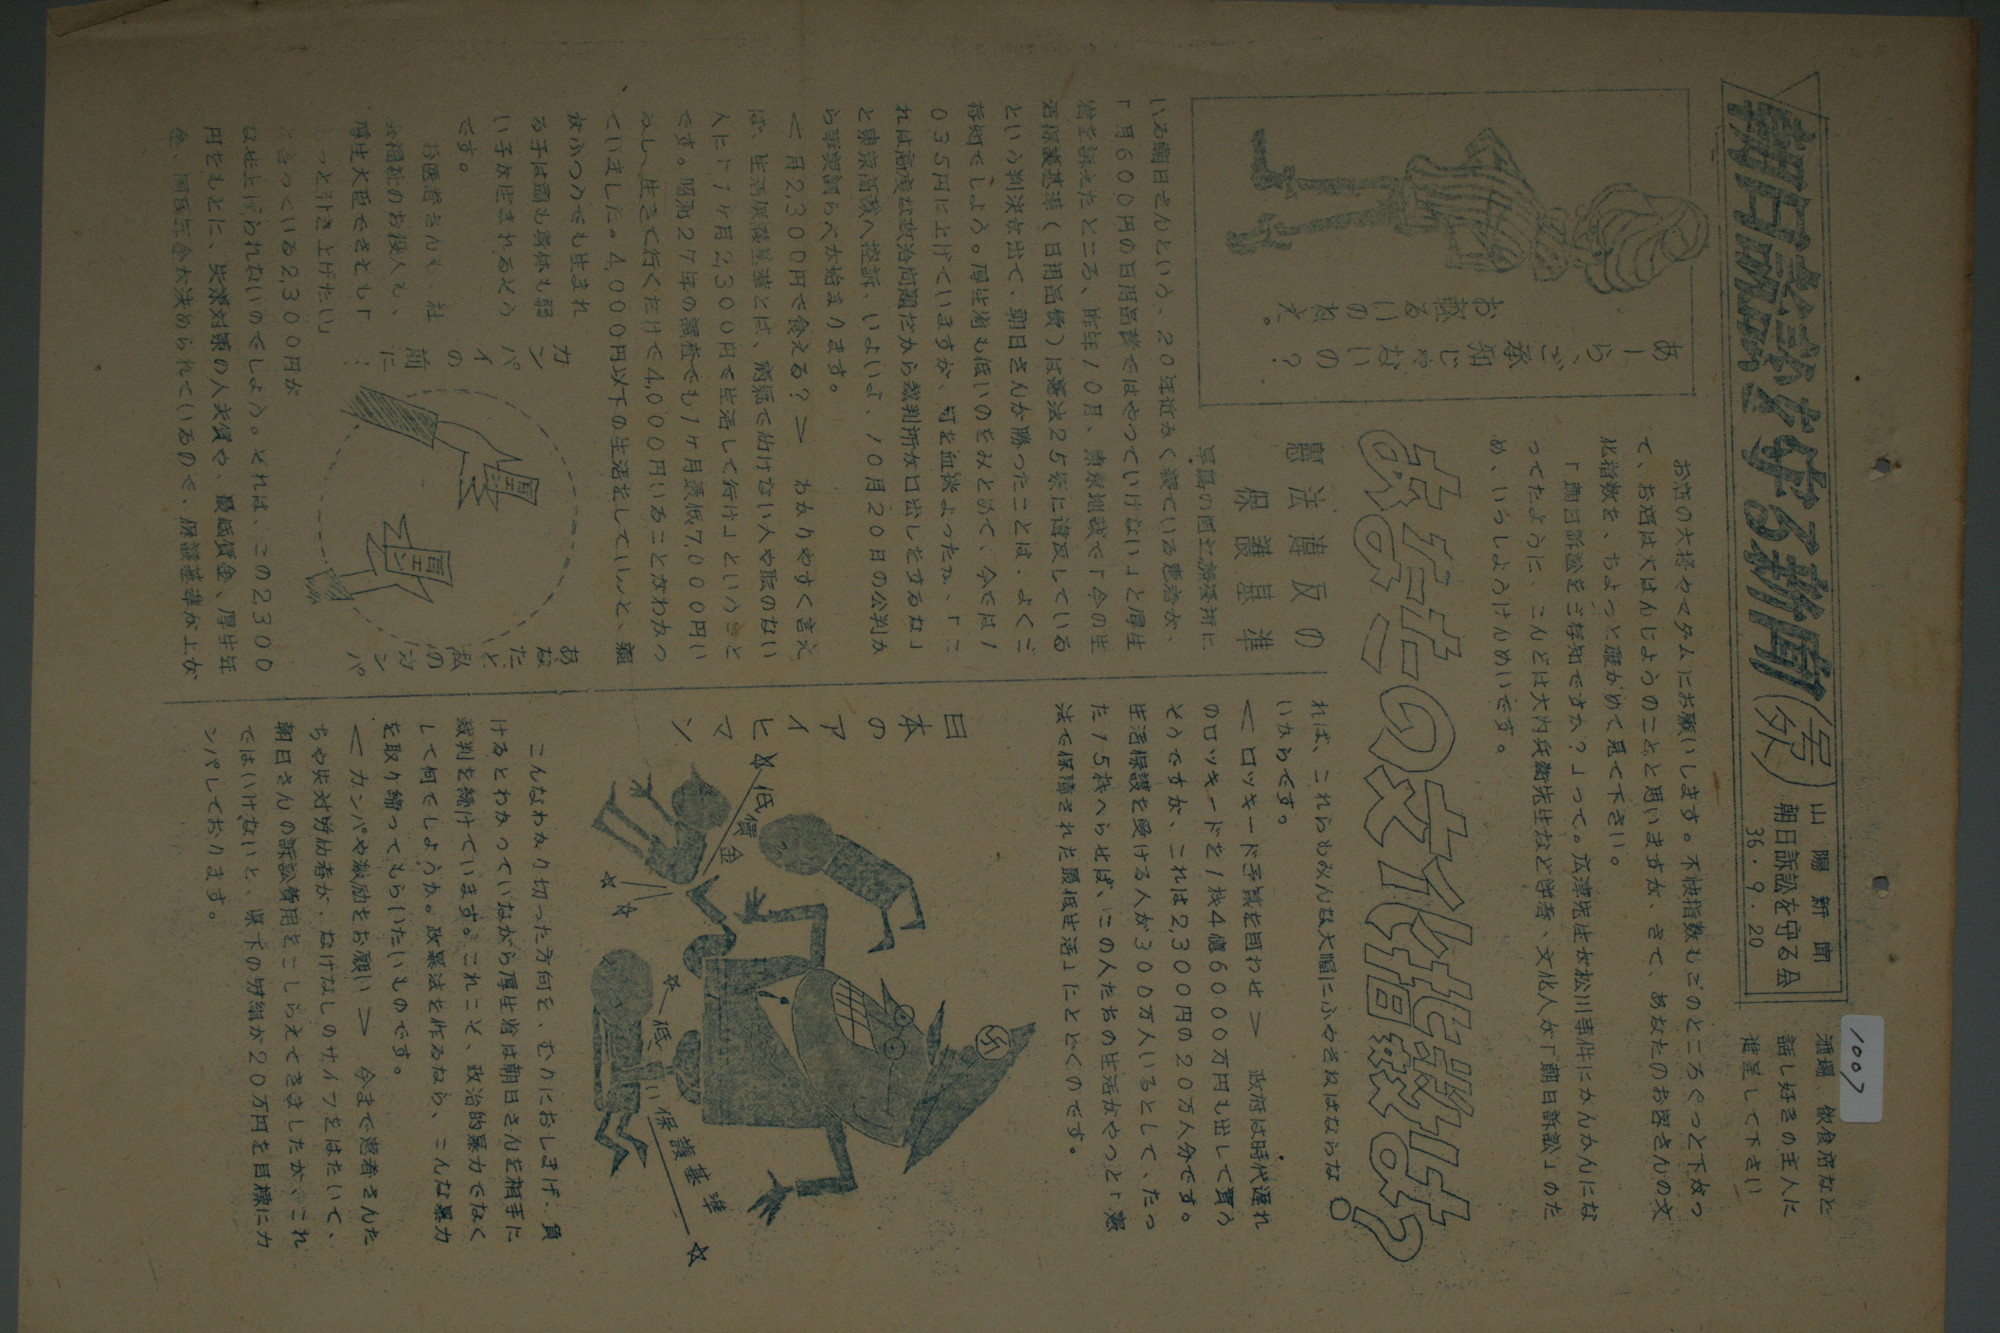 朝日訴訟を守る新聞
号外
山陽新聞
朝日訴訟を守る会
36.9.20
酒場 飲食店など
話し好きの主人に
進呈して下さい
1007
お店の大将やマダムにお願いします。不快指数もこのところぐっと下がっ
て、お酒は大はんじようのことと思いますが、さて、あなたのお客さんの文
化指数を、ちよっと確かめて見て下さい。
「朝日訴訟をご存知ですか?」って。広津先生が松川事件にかんかんにな
ってたように、こんどは大内兵衛先生など学者、文化人が「朝日訴訟」のた
め、いっしようけんめいです。
あなたの文化指数は?
あーら、ご承知じゃないの?
お越るいのねえ。
憲法違反の
保護基準
早島の国立療養所に
いる朝日さんという、20年近かく寝ている患者が、
「月600円の日用品費ではやっていけない」と厚生
省を訴えたところ、昨年10月、東京地裁で「今の生
活保護基準(日用品費)は憲法25条に違反している
という判決が出て、朝日さんが勝ったことは、よくご
存知でしよう。厚生省も低いのをみとめて、今では1
035円に上げていますが、何を血迷よったか、「こ
れは高度な政治問題だから裁判所が口出しをするな」
と東京高裁へ控訴、いよいよ、10月20日の公判か
ら事実調らべが始まります。
<月2,300円で食える?> わかりやすく言え
ば、生活保護基準とは、病気で働けない人や職のない
人に「1ケ月2,300円で生活して行け」ということ
です。昭和27年の調査でも1ケ月最低7,000円い
るし、生きて行くだけで4,000円いることがわかっ
ていました。4,000円以下の生活をしていると、親
がふつうでも生まれ
る子は頭も身体も弱
い子が生まれるそう
です。
お医者さんも 社
会福祉のお役人も、
厚生大臣でさえも「
っと引き上げたい」
言っている2,300円が
なぜ上げられないのでしよう。それは、この2300
円をもとに、失業対策の人夫賃や、最低賃金、厚生年
金、国民年金が決められているので、保護基準が上が
カンパイの前に…
あなたと私のカンパ
れば、これらもみんな大幅にふやさねばならな
いからです。
<ロッキード予算を回わせ> 政府は時代遅れ
のロッキードを1機4億6000万円も出して買う
そうですが、これは2,300円の20万人分です。
生活保護を受ける人が300万人いるとして、たっ
た15機へらせば、この人たちの生活がやっと「憲
法で保障された最低生活」にとどくのです。
日本のアイヒマン
低賃金
低い保護基準
こんなわかり切った方向を、むりにおしまげ、負
けるとわかっていながら厚生省は朝日さんを相手に
裁判を続けています。これこそ、政治的暴力でなく
して何でしようか。政暴法を作るなら、こんな暴力
を取り締ってもらいたいものです。
<カンパや激励をお願い> 今まで患者さんた
ちや失対労働者が、なけなしのサイフをはたいて、
朝日さんの訴訟費用をこしらえてきましたが、これ
ではいけないと、県下の労組が20万円を目標にカ
ンパしております。